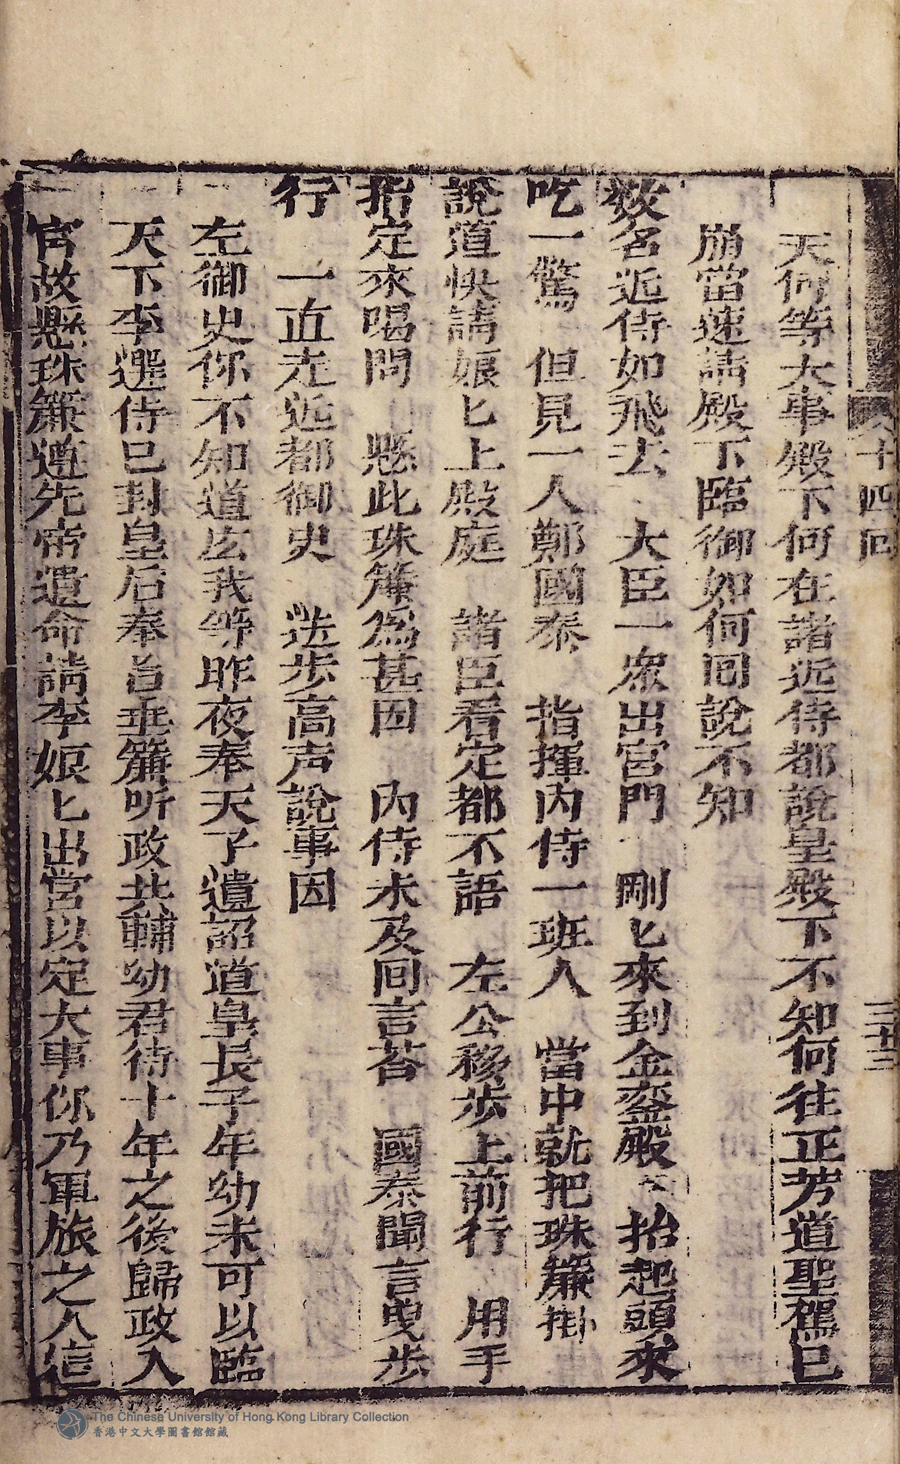 十四回
三十三
天何等大事殿下何在諸近侍都說皇殿下不知何往正芳道聖駕已
崩當速請殿下臨御如何回說不知
数名近侍如飛去 大臣一眾出宮門 剛匕來到金鑾殿 抬起頭來
吃一驚 但見一人鄭國泰 指揮內侍一班人 當中就把珠簾掛
說道快請娘匕上殿庭 諸臣看定都不語 左公移步上前行 用手
指定來喝問 懸此珠簾為甚因 內侍未及回言荅 國泰聞言曳步
行 一直走近都御史 迸步高声說事因
左御史你不知道広我等昨夜奉天子遺詔道皇長子年幼未可以臨
天下李選侍已封皇后奉旨垂簾听政共輔幼君待十年之後歸政入
宮故懸珠簾遵先帝遺命請李娘匕出宮以定大事你乃軍旅之人
The Chinese University of Hong Kong Library Collection
香港中文大學圖書館館藏